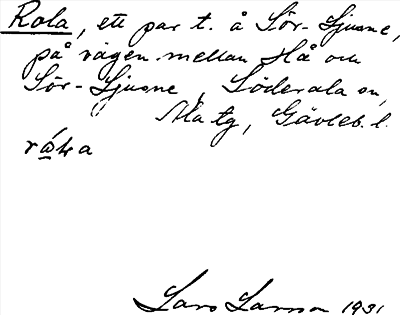 Rola, ett par t. å Sör-Ljusne,
på vägen mellan Hå och
Sör-Ljusne, Söderala sn,
Ala tg, Gävleb. l.
Lars Larsson 1931